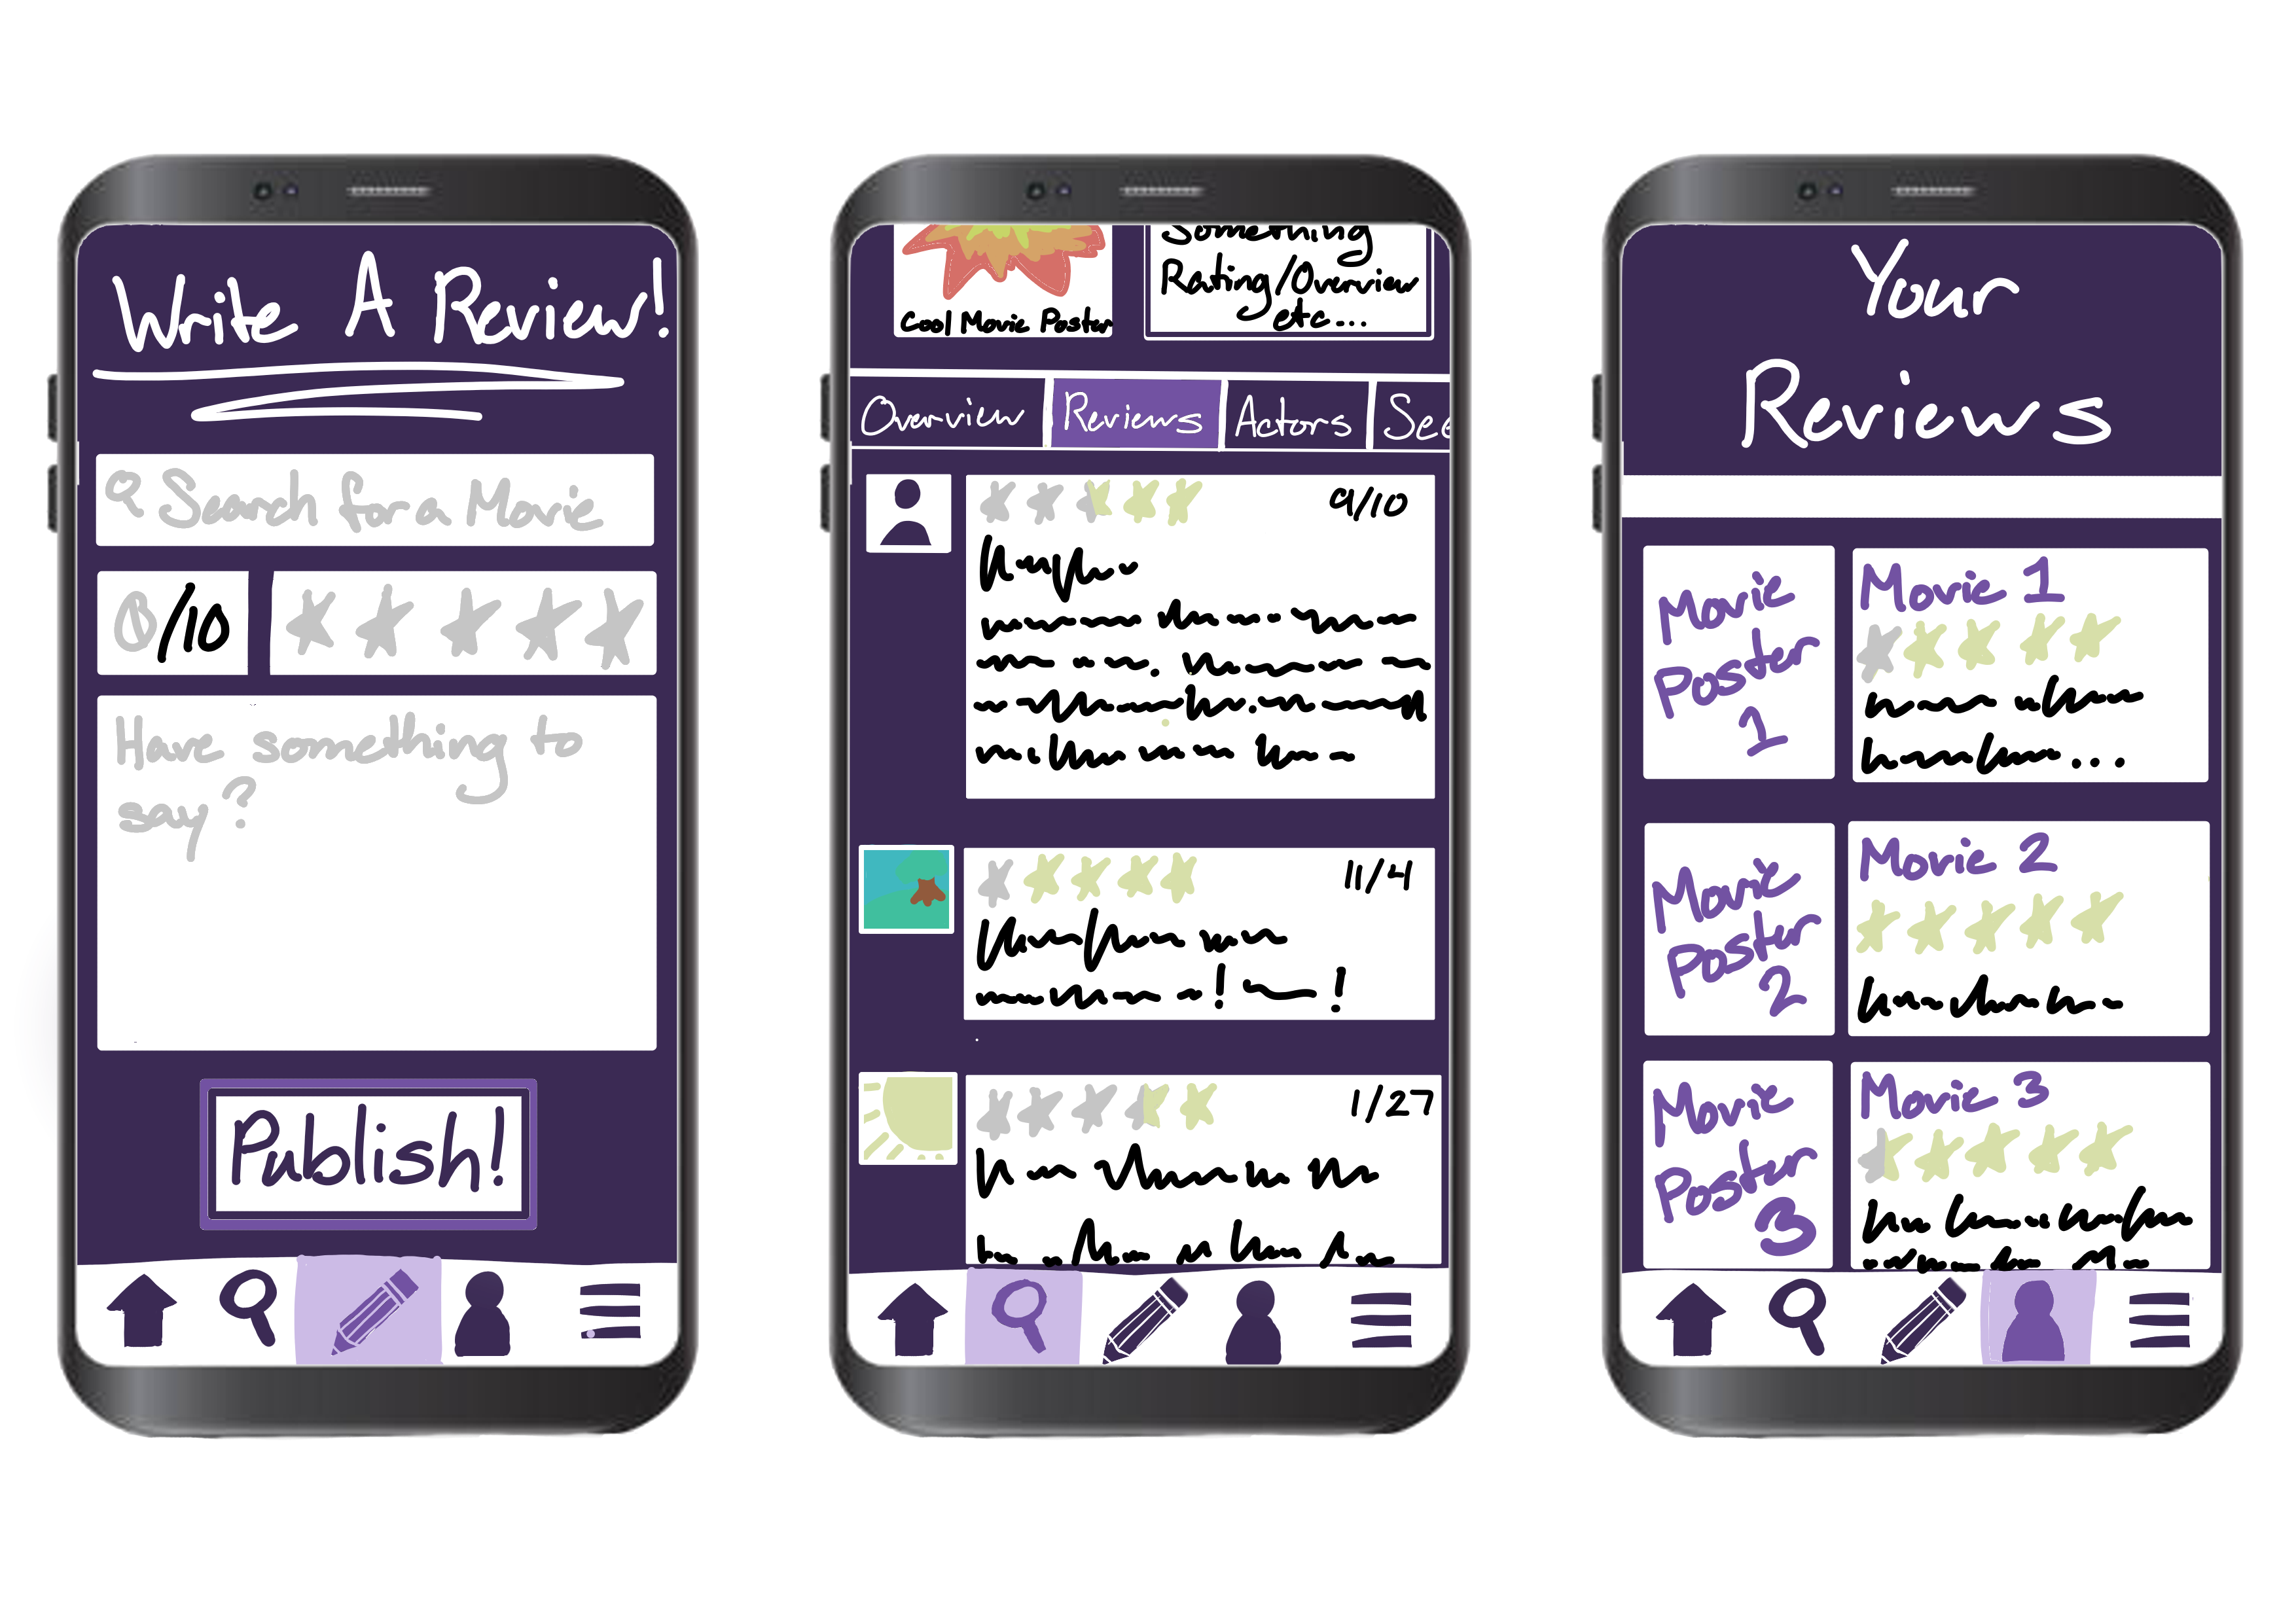 Write A Review!
Search for a Movie
0/10
Have something to
say?
Publish!
Cool Movie Poster
Something
Rating/Overview
etc...
Overview
Reviews
Actors
See
9/10
11/4
1/27
Your
Reviews
Movie
Poster
1
Movie 1
Movie
Poster
2
Movie 2
Movie
Poster
3
Movie 3